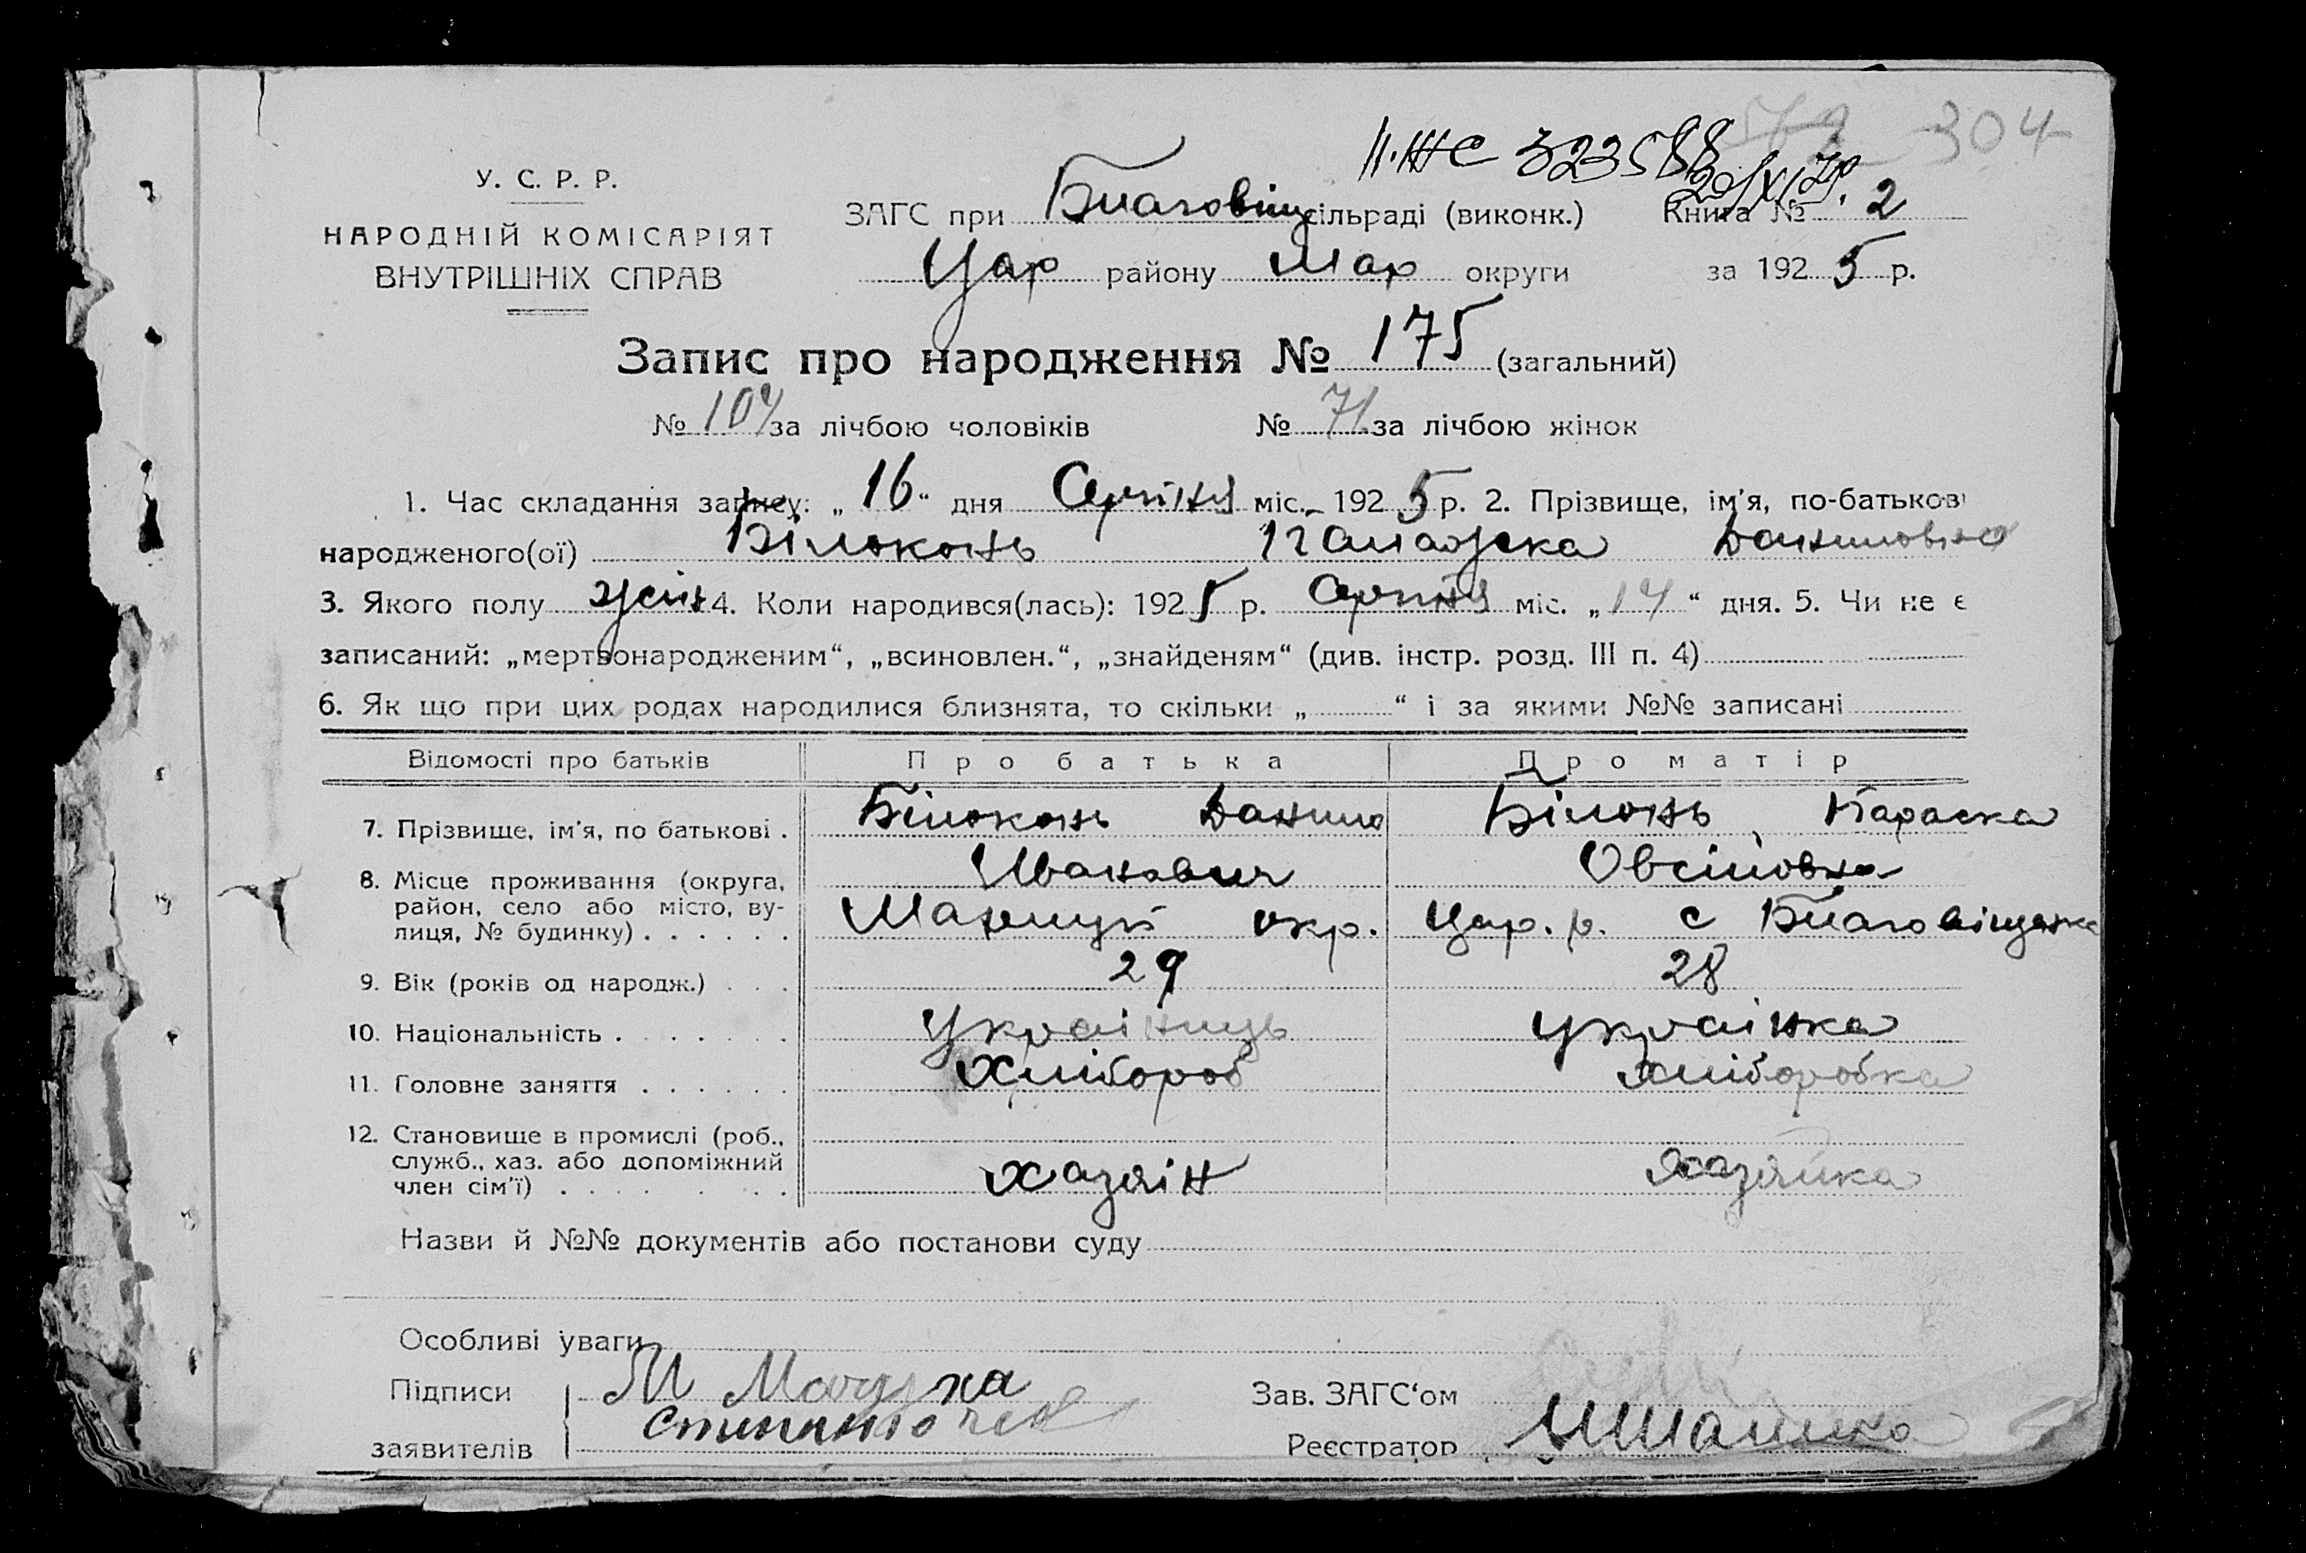 304
II-ЖС 323588
У. С. Р. Р.
НАРОДНІЙ КОМІСАРІЯТ
ВНУТРІШНІХ СПРАВ
ЗАГС при Благовіщ сільраді (виконк.) Книга № 2
Цар району Мар округи за 1925 р.
Запис про народження № 175 (загальний)
№ 104 за лічбою чоловіків № 71 за лічбою жінок
1. Час складання запису: „16“ дня Серпня міс. 1925 р. 2. Прізвище, ім'я, по-батькові
народженого(ої) Білоконь Палажка Даниловна
3. Якого полу жін 4. Коли народився(лась): 1925 р. Серпня міс. „14“ дня. 5. Чи не є
записаний: „мертвонародженим“, „всиновлен.“, „знайденям“ (див. інстр. розд. III п. 4)
6. Як що при цих родах народилися близнята, то скільки „ “ і за якими №№ записані
Відомості про батьків Про батька Про матір
7. Прізвище, ім'я, по батькові . Білоконь Данило Білонь, Параска
Иванавич Овсіповна
8. Місце проживання (округа, район, село або місто, вулиця, № будинку) . . . . . . Маріуп окр. Цар. р. с Благовіщенка
9. Вік (років од народж.) . . . 29 28
10. Національність . . . . . . Українець Українка
11. Головне заняття . . . . . . Хлібороб Хліборобка
12. Становище в промислі (роб., служб., хаз. або допоміжний член сім'ї) . . . . . . Хазяін Хазяйка
Назви й №№ документів або постанови суду
Особливі уваги
Підписи
заявителів
Зав. ЗАГС‘ом
Реєстратор